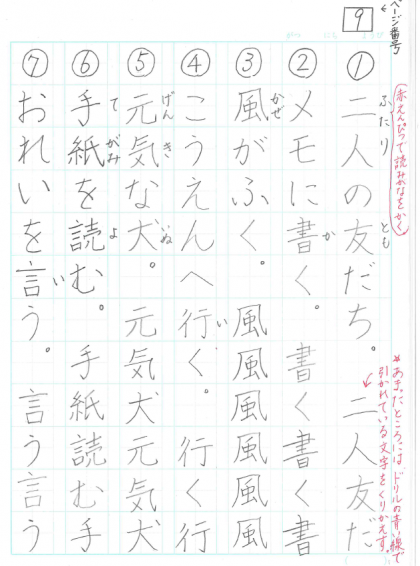 ページ番号
9
赤えんぴつで読みがなをかく
①二人の友だち。 二人友だ
ふたり とも
②メモに書く。 書く書く書
か
③風がふく。 風風風風風
かぜ
④こうえんへ行く。 行く行
い
⑤元気な犬。 元気犬元気犬
げんき いぬ
⑥手紙を読む。 手紙読む手
てがみ よ
⑦おれいを言う。 言う言う
い
★あまったところには、ドリルの青い線で
引かれている文字をくりかえす。